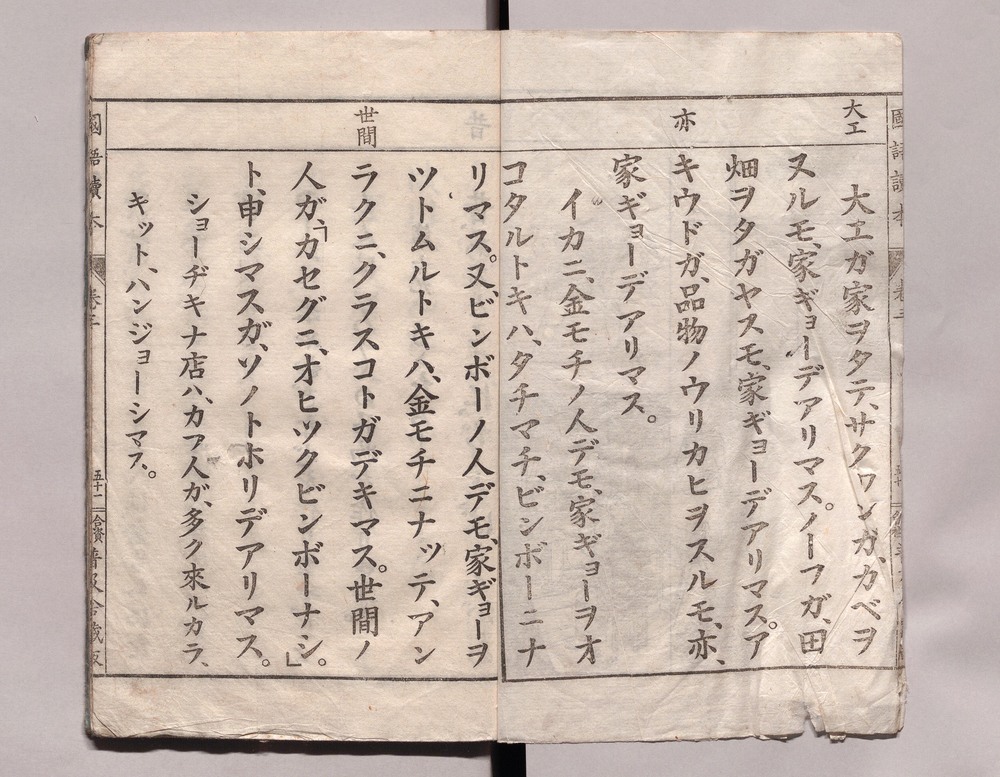 大工
亦
大工ガ家ヲタテ、サクヮンガ、カベヲ
ヌルモ、家ギョーデアリマス。ノーフガ、田
畑ヲタガヤスモ、家ギョーデアリマス。ア
キウドガ、品物ノウリカヒヲスルモ、亦、
家ギョーデアリマス。
イカニ、金モチノ人デモ、家ギョーヲオ
コタルトキハ、タチマチ、ビンボーニナ
世間
リマス。又、ビンボーノ人デモ、家ギョーヲ
ツトムルトキハ、金モチニナッテ、アン
ラクニ、クラスコトガデキマス。世間ノ
人ガ、「カセグニ、オヒツクビンボーナシ。」
ト、申シマスガ、ソノトホリデアリマス。
ショーヂキナ店ハ、カフ人ガ、多ク來ルカラ、
キット、ハンジョーシマス。
國語讀本